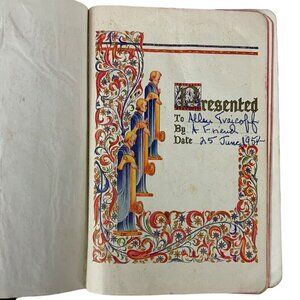 Presented
To Allen Traicoff
By A Friend
Date 25 June 1954